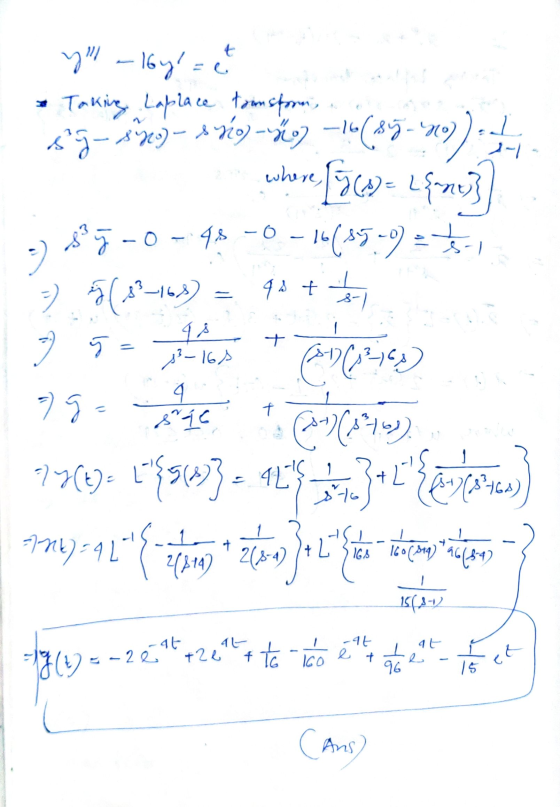 y''' - 16y' = e^t
Taking Laplace transform,
s³ȳ - s²y(0) - sy'(0) - y''(0) - 16(sȳ - y(0)) = 1/(s-1)
where, [ȳ(s) = L{y(t)}]
=) s³ȳ - 0 - 4s - 0 - 16(sȳ - 0) = 1/(s-1)
=) ȳ(s³-16s) = 4s + 1/(s-1)
=) ȳ = 4s/(s³-16s) + 1/((s-1)(s³-16s))
=) ȳ = 4/(s²-16) + 1/((s-1)(s³-16s))
=) y(t) = L⁻¹{ȳ(s)} = 4L⁻¹{1/(s²-16)} + L⁻¹{1/((s-1)(s³-16s))}
=) y(t) = 4L⁻¹{-1/(2(s+4)) + 1/(2(s-4))} + L⁻¹{1/(16s) - 1/(160(s+4)) + 1/(96(s-4)) - 1/(15(s-1))}
=) y(t) = -2e^(-4t) + 2e^(4t) + 1/16 - 1/160 e^(-4t) + 1/96 e^(4t) - 1/15 e^t
(Ans)